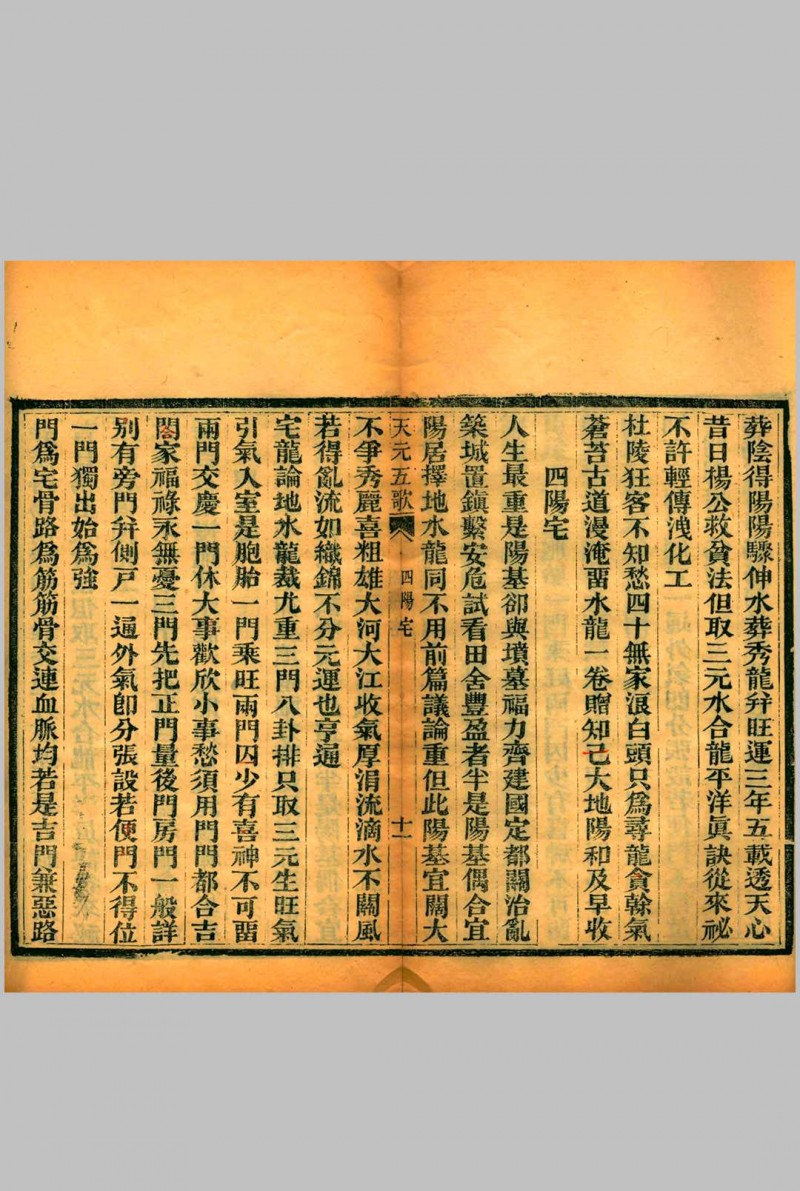 葬陰得陽陽驟伸水葬秀龍弁旺運三年五載透天心
昔日楊公救貧法但取三元水合龍平洋眞訣從來祕
不許輕傳洩化工
杜陵狂客不知愁四十無家浪白頭只爲尋龍貪幹氣
蒼苔古道漫淹畱水龍一卷贈知己大地陽和及早收
四陽宅
人生最重是陽基卻與墳墓福力齊建國定都關治亂
築城置鎭繫安危試看田舍豐盈者半是陽基偶合宜
陽居擇地水龍同不用前篇議論重但此陽基宜闊大
天元五歌 四陽宅 十一
不爭秀麗喜粗雄大河大江收氣厚涓流滴水不關風
若得亂流如織錦不分元運也亨通
宅龍論地水龍裁尤重三門八卦排只取三元生旺氣
引氣入室是胞胎一門乘旺兩門囚少有喜神不可畱
兩門交慶一門休大事歡欣小事愁須用門門都合吉
閤家福祿永無憂三門先把正門量後門房門一般詳
別有旁門弁側戸一通外氣卽分張設若便門不得位
一門獨出始爲強
門爲宅骨路爲筋筋骨交連血脈均若是吉門兼惡路